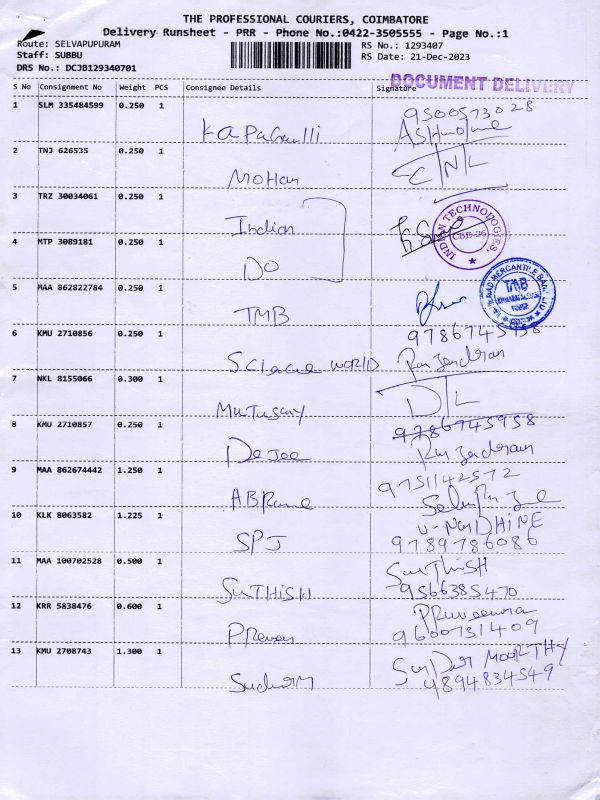 THE PROFESSIONAL COURIERS, COIMBATORE
Delivery Runsheet - PRR - Phone No.:0422-3505555 - Page No.:1
Route: SELVAPUPURAM
Staff: SUBBU
DRS No.: DCJB129340701
RS No.: 1293407
RS Date: 21-Dec-2023
DOCUMENT DELIVERY
S No Consignment No Weight PCS Consignee Details Signature
1 SLM 335484599 0.250 1
9500573028
2 TNJ 626535 0.250 1 Mohan CNL
3 TRZ 30034061 0.250 1 Indian
INDIAN TECHNOLOGIES.
CBE-26
4 MTP 3089181 0.250 1 DO
5 MAA 862822784 0.250 1 TMB
TMB
6 KMU 2710856 0.250 1 Science WORLD
Rajendran
7 NKL 8155066 0.300 1 DL
8 KMU 2710857 0.250 1 9786745958
Rajendran
9 MAA 862674442 1.250 1 9751142572
10 KLK 8063582 1.225 1 SPJ
9789786086
11 MAA 100702528 0.500 1 SuTHiSH SuThiSH
9566385470
12 KRR 5838476 0.600 1
9600731409
13 KMU 2708743 1.300 1 MOORTHY
9894834549